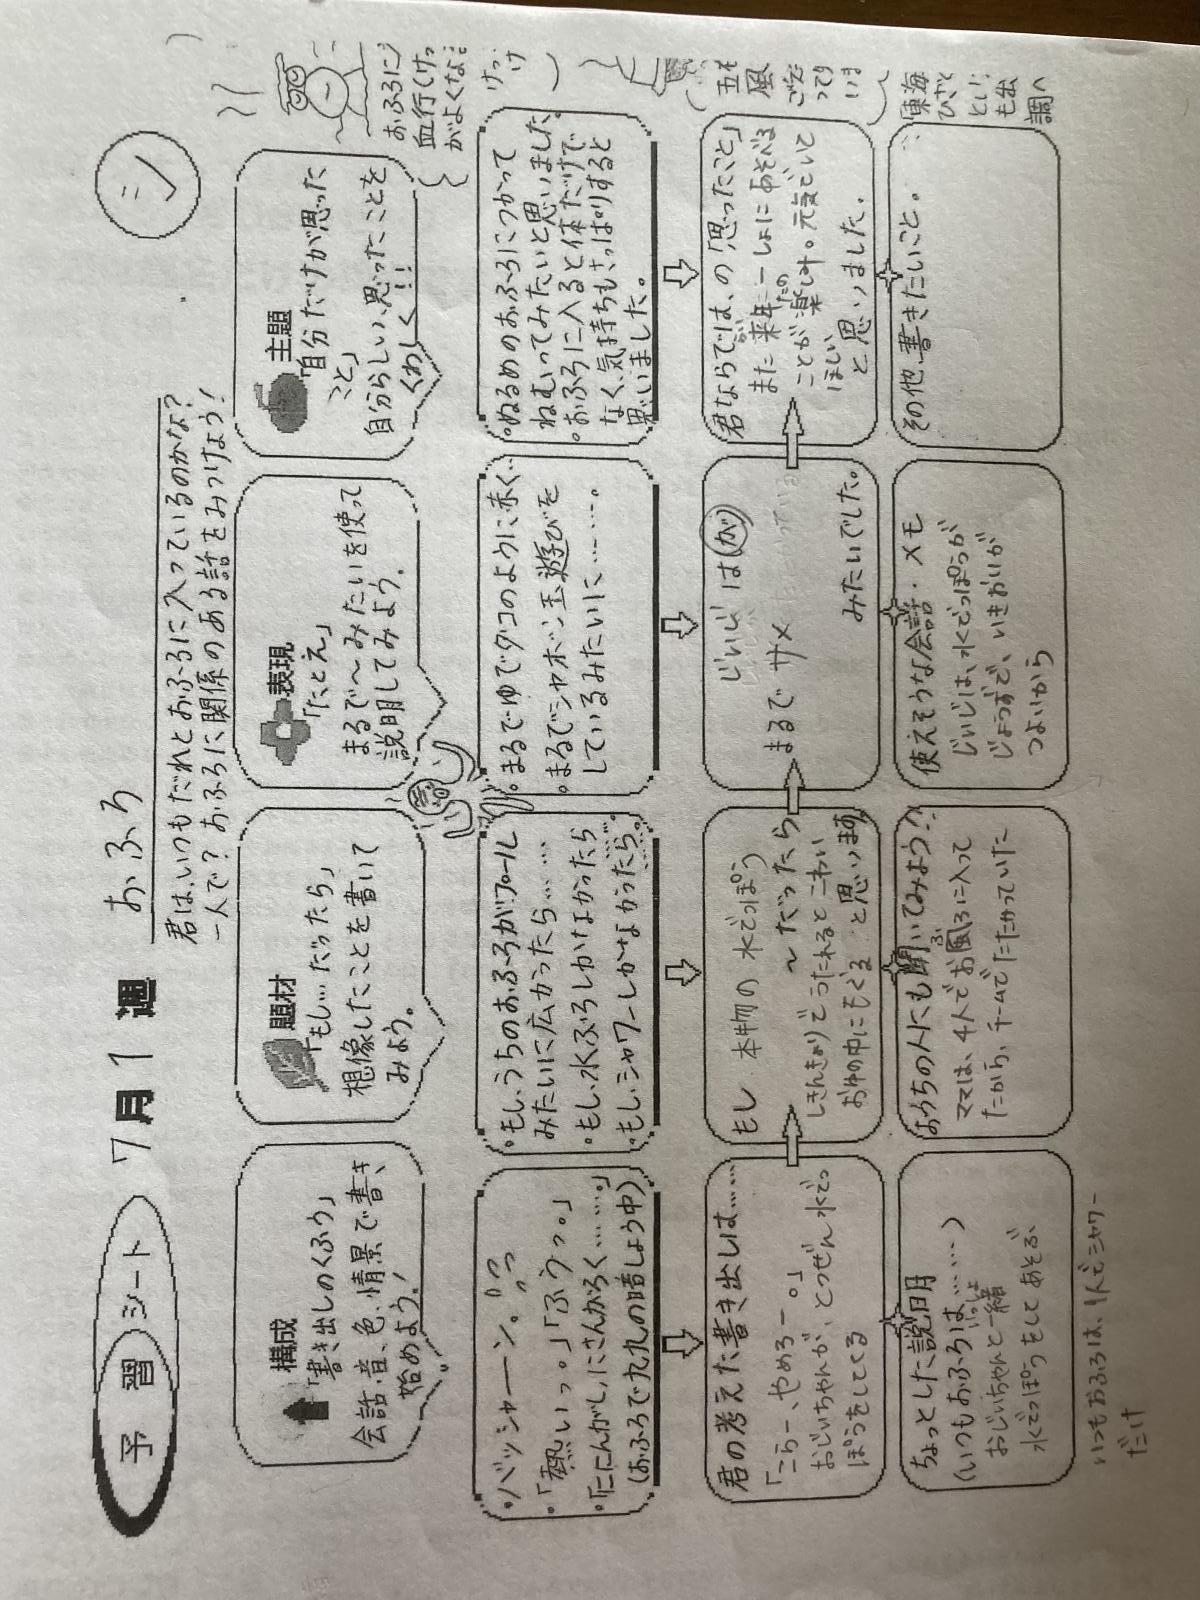 予習シート 7月1週 おふろ シ
君は、いつもだれとおふろに入っているのかな?
一人で? おふろに関係のある話をみつけよう!
構成
「書き出しのくふう」
会話・音、色、情景で書き
始めよう!
題材
「もし…だったら」
想像したことを書いて
みよう。
表現
「たとえ」
まるで〜みたいを使って
説明してみよう。
主題
「自分だけが思った
こと」
自分らしい、思ったことを
くわしく!!
おふろに入
血行(けっ
がよくな
けっ
け
・バッシャーン。
・「熱いっ。」「ふうっ。」
・「ににんがし、にさんがろく……。」
(おふろで九九の暗しょう中)
・もし、うちのおふろがプール
みたいに広かったら……
・もし、水ぶろしかなかったら
・もし、シャワーしかなかったら……。
・まるでゆでダコのように赤く…
・まるでシャボン玉遊びを
しているみたいに………。
・ぬるめのおふろにつかって
ねむってみたいと思いました。
・おふろに入ると体だけで
なく、気持ちもさっぱりすると
思いました。
五
風
ってり
君の考えた書き出しは……
「こらー、やめろー。」
おじいちゃんが、とつぜん水でっ
ぽうをしてくる
もし 本物の水でっぽう
〜だったら
しきんきょりでうたれるとこわい
お湯の中にもぐる と思います
じいじは(が)
まるで サメ
みたいでした。
君ならでは、の「思ったこと」
また来年一しょにあそべる
ことが楽しみ。元気でいて
ほしい
と思いました。
東海
ひざ
とい
も出
調べ
ちょっとした説明
(いつもおふろは……)
おじいちゃんと一緒
水でっぽうをしてあそぶ
いつもおふろは、1人でシャワー
だけ
おうちの人にも聞いてみよう!
ママは、4人でお風ろに入って
たから、チームでたたかっていた
使えそうな会話・メモ
じいじは、水でっぽうが
じょうずで、いきおいが
つよいから
その他、書きたいこと。